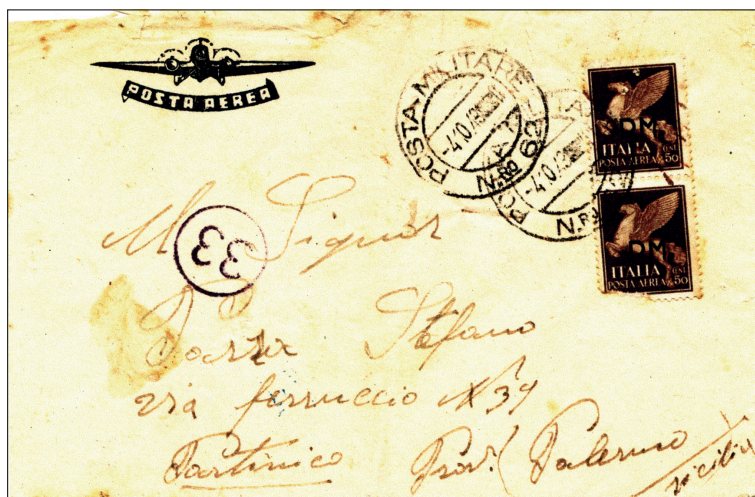 POSTA AEREA
POSTA MILITARE N.RO 62
-4.10.42
-4.10.4
N.RO
P.M.
ITALIA
POSTA AEREA C. 50
P.M.
ITALIA
POSTA AEREA C. 50
33
Al Signor
Stefano
via ferruccio N 34
Partinico Prov. (Palermo
Sicilia